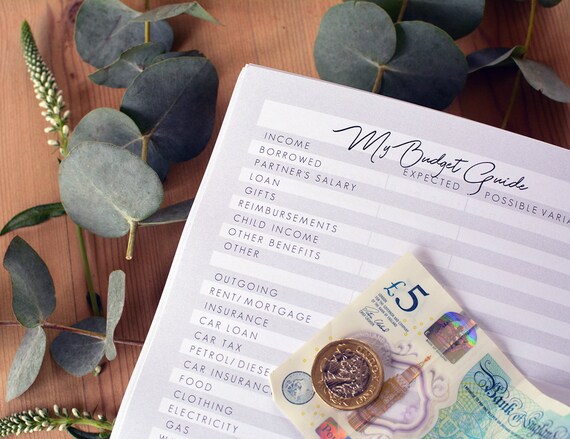 My Budget Guide
INCOME EXPECTED POSSIBLE VARIA
BORROWED
PARTNER'S SALARY
LOAN
GIFTS
REIMBURSEMENTS
CHILD INCOME
OTHER BENEFITS
OTHER
OUTGOING
RENT/MORTGAGE
INSURANCE
CAR LOAN
CAR TAX
PETROL/DIESE
CAR INSURANC
FOOD
CLOTHING
ELECTRICITY
GAS
W
£5
Bank of England